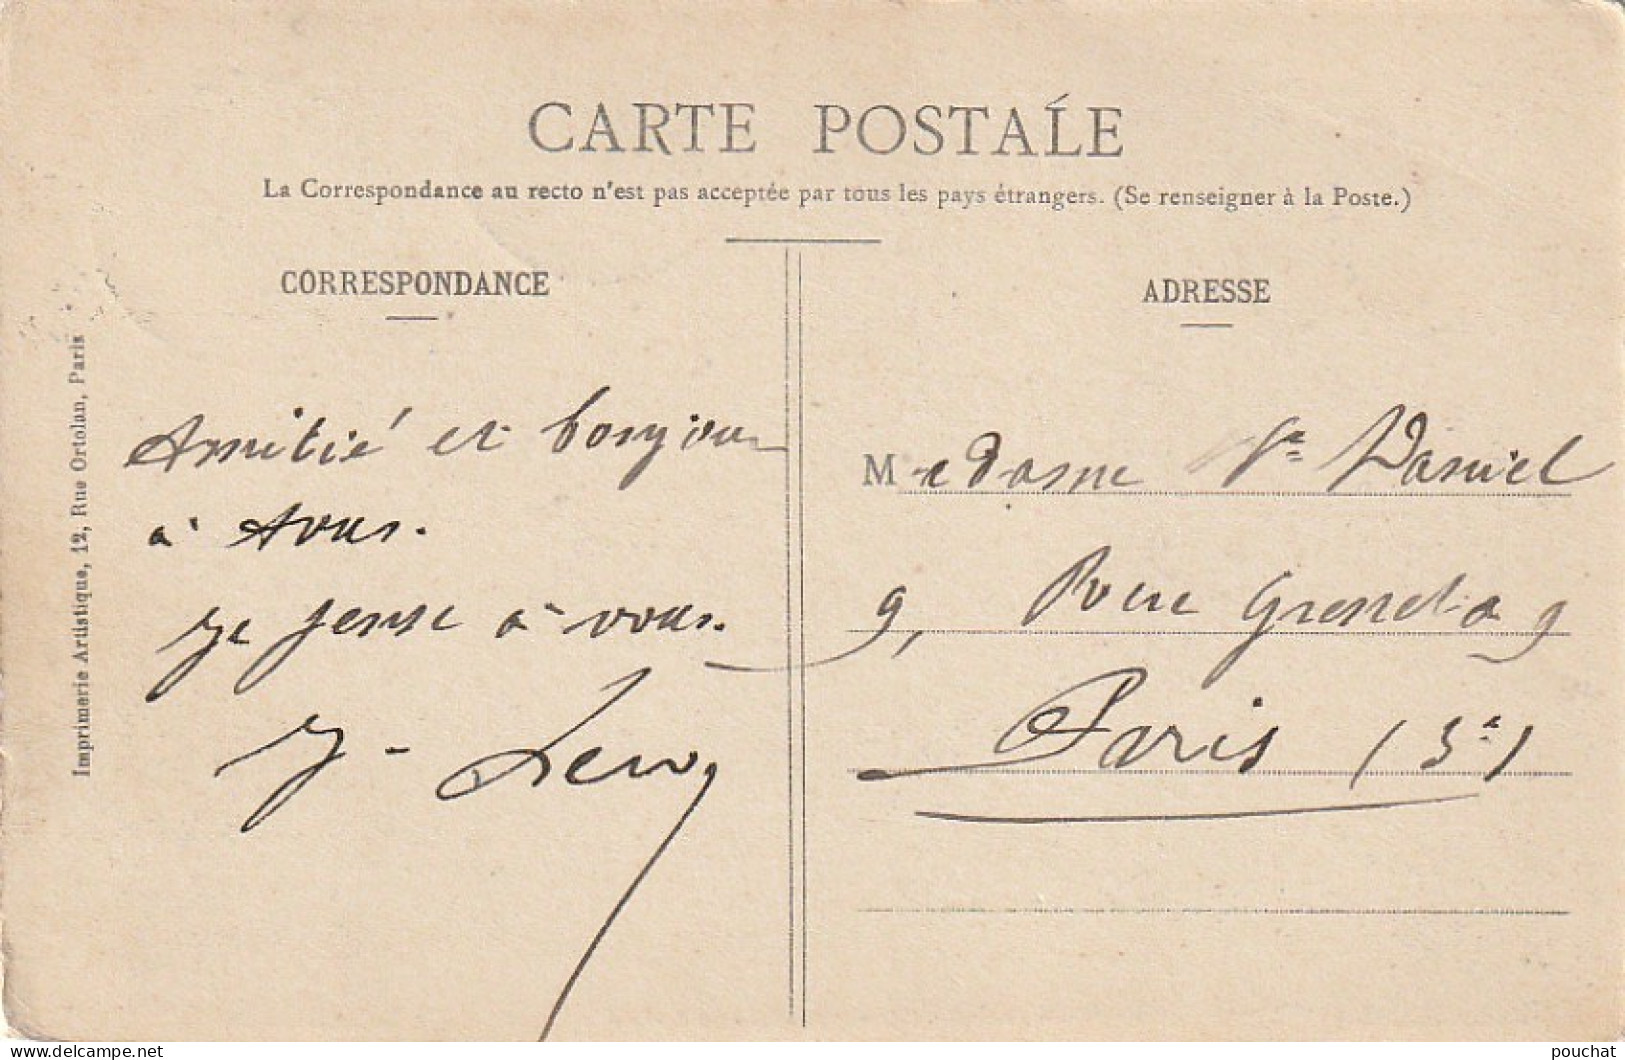 CARTE POSTALE
La Correspondance au recto n'est pas acceptée par tous les pays étrangers. (Se renseigner à la Poste.)
CORRESPONDANCE
Amitié et bonjour
à tous.
Je pense à vous.
J. Levy
ADRESSE
Madame Daniel
9, Rue 9
Paris (3e)
Imprimerie Artistique, 12, Rue Ortolan, Paris
www.delcampe.net
pouchat